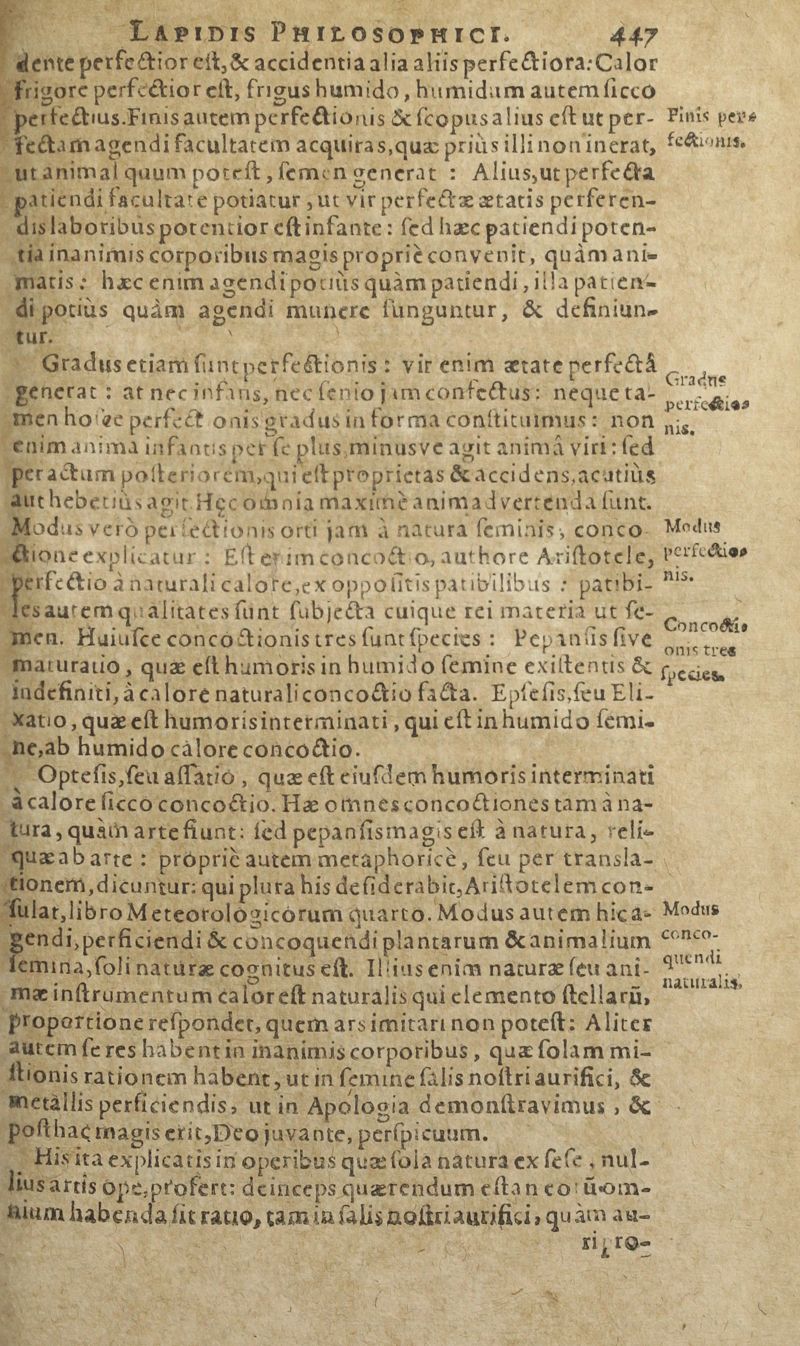 LAPIDIS PHILOSOPHICI. 447
dente perfectior est, & accidentia alia aliis perfectiora: Calor
frigore perfectior est, frigus humido, humidum autem sicco
perfectius. Finis autem perfectionis & scopus alius est ut per-
fectam agendi facultatem acquiras, quæ priùs illi non inerat,
ut animal quum potest, semen generat : Alius, ut perfecta
patiendi facultate potiatur, ut vir perfectæ ætatis perferen-
dis laboribus potentior est infante: sed hæc patiendi poten-
tia inanimis corporibus magis propriè convenit, quàm ani-
matis: hæc enim agendi potiùs quàm patiendi, illa patien-
di potiùs quàm agendi munere funguntur, & definiun-
tur.
Finis per-
fectionis.
Gradus etiam sunt perfectionis : vir enim ætate perfectâ
generat : at nec infans, nec senio jam confectus: neque ta-
men hosce perfectionis gradus in forma constituimus: non
enim anima infantis per se plus minusve agit animâ viri: sed
per actum posteriorem, qui est proprietas & accidens, acutiùs
aut hebetiùs agit. Hęc omnia maximè animadvertenda sunt.
Gradus
perfectio-
nis.
Modus verò perfectionis orti jam à natura seminis, conco-
ctione explicatur : Est enim concoctio, authore Aristotele,
perfectio à naturali calore, ex oppositis patibilibus : patibi-
les autem qualitates sunt subjecta cuique rei materia ut se-
men. Huiusce concoctionis tres sunt species : Pepansis sive
maturatio, quæ est humoris in humido semine existentis &
indefiniti, à calore naturali concoctio facta. Epsesis, seu Eli-
xatio, quæ est humoris interminati, qui est in humido semi-
ne, ab humido calore concoctio.
Modus
perfectio-
nis.
Concocti-
onis tres
species.
Optesis, seu assatio, quæ est eiusdem humoris interminati
à calore sicco concoctio. Hæ omnes concoctiones tam à na-
tura, quàm arte fiunt: sed pepansis magis est à natura, reli-
quæ ab arte : propriè autem metaphoricè, seu per transla-
tionem, dicuntur: qui plura his desiderabit, Aristotelem con-
sulat, libro Meteorologicorum quarto. Modus autem hic a-
gendi, perficiendi & concoquendi plantarum & animalium
semina, soli naturæ cognitus est. Illius enim naturæ seu ani-
mæ instrumentum calor est naturalis qui elemento stellarũ,
proportione respondet, quem ars imitari non potest: Aliter
autem se res habent in inanimis corporibus, quæ solam mi-
stionis rationem habent, ut in semine salis nostri aurifici, &
metallis perficiendis, ut in Apologia demonstravimus, &
posthac magis erit, Deo juvante, perspicuum.
Modus
conco-
quendi
naturalis.
His ita explicatis in operibus quæ sola natura ex sese, nul-
lius artis ope, profert: deinceps quærendum est an eorũ om-
nium habenda sit ratio, tam in salis nostri aurifici, quàm au-
ri, ro-